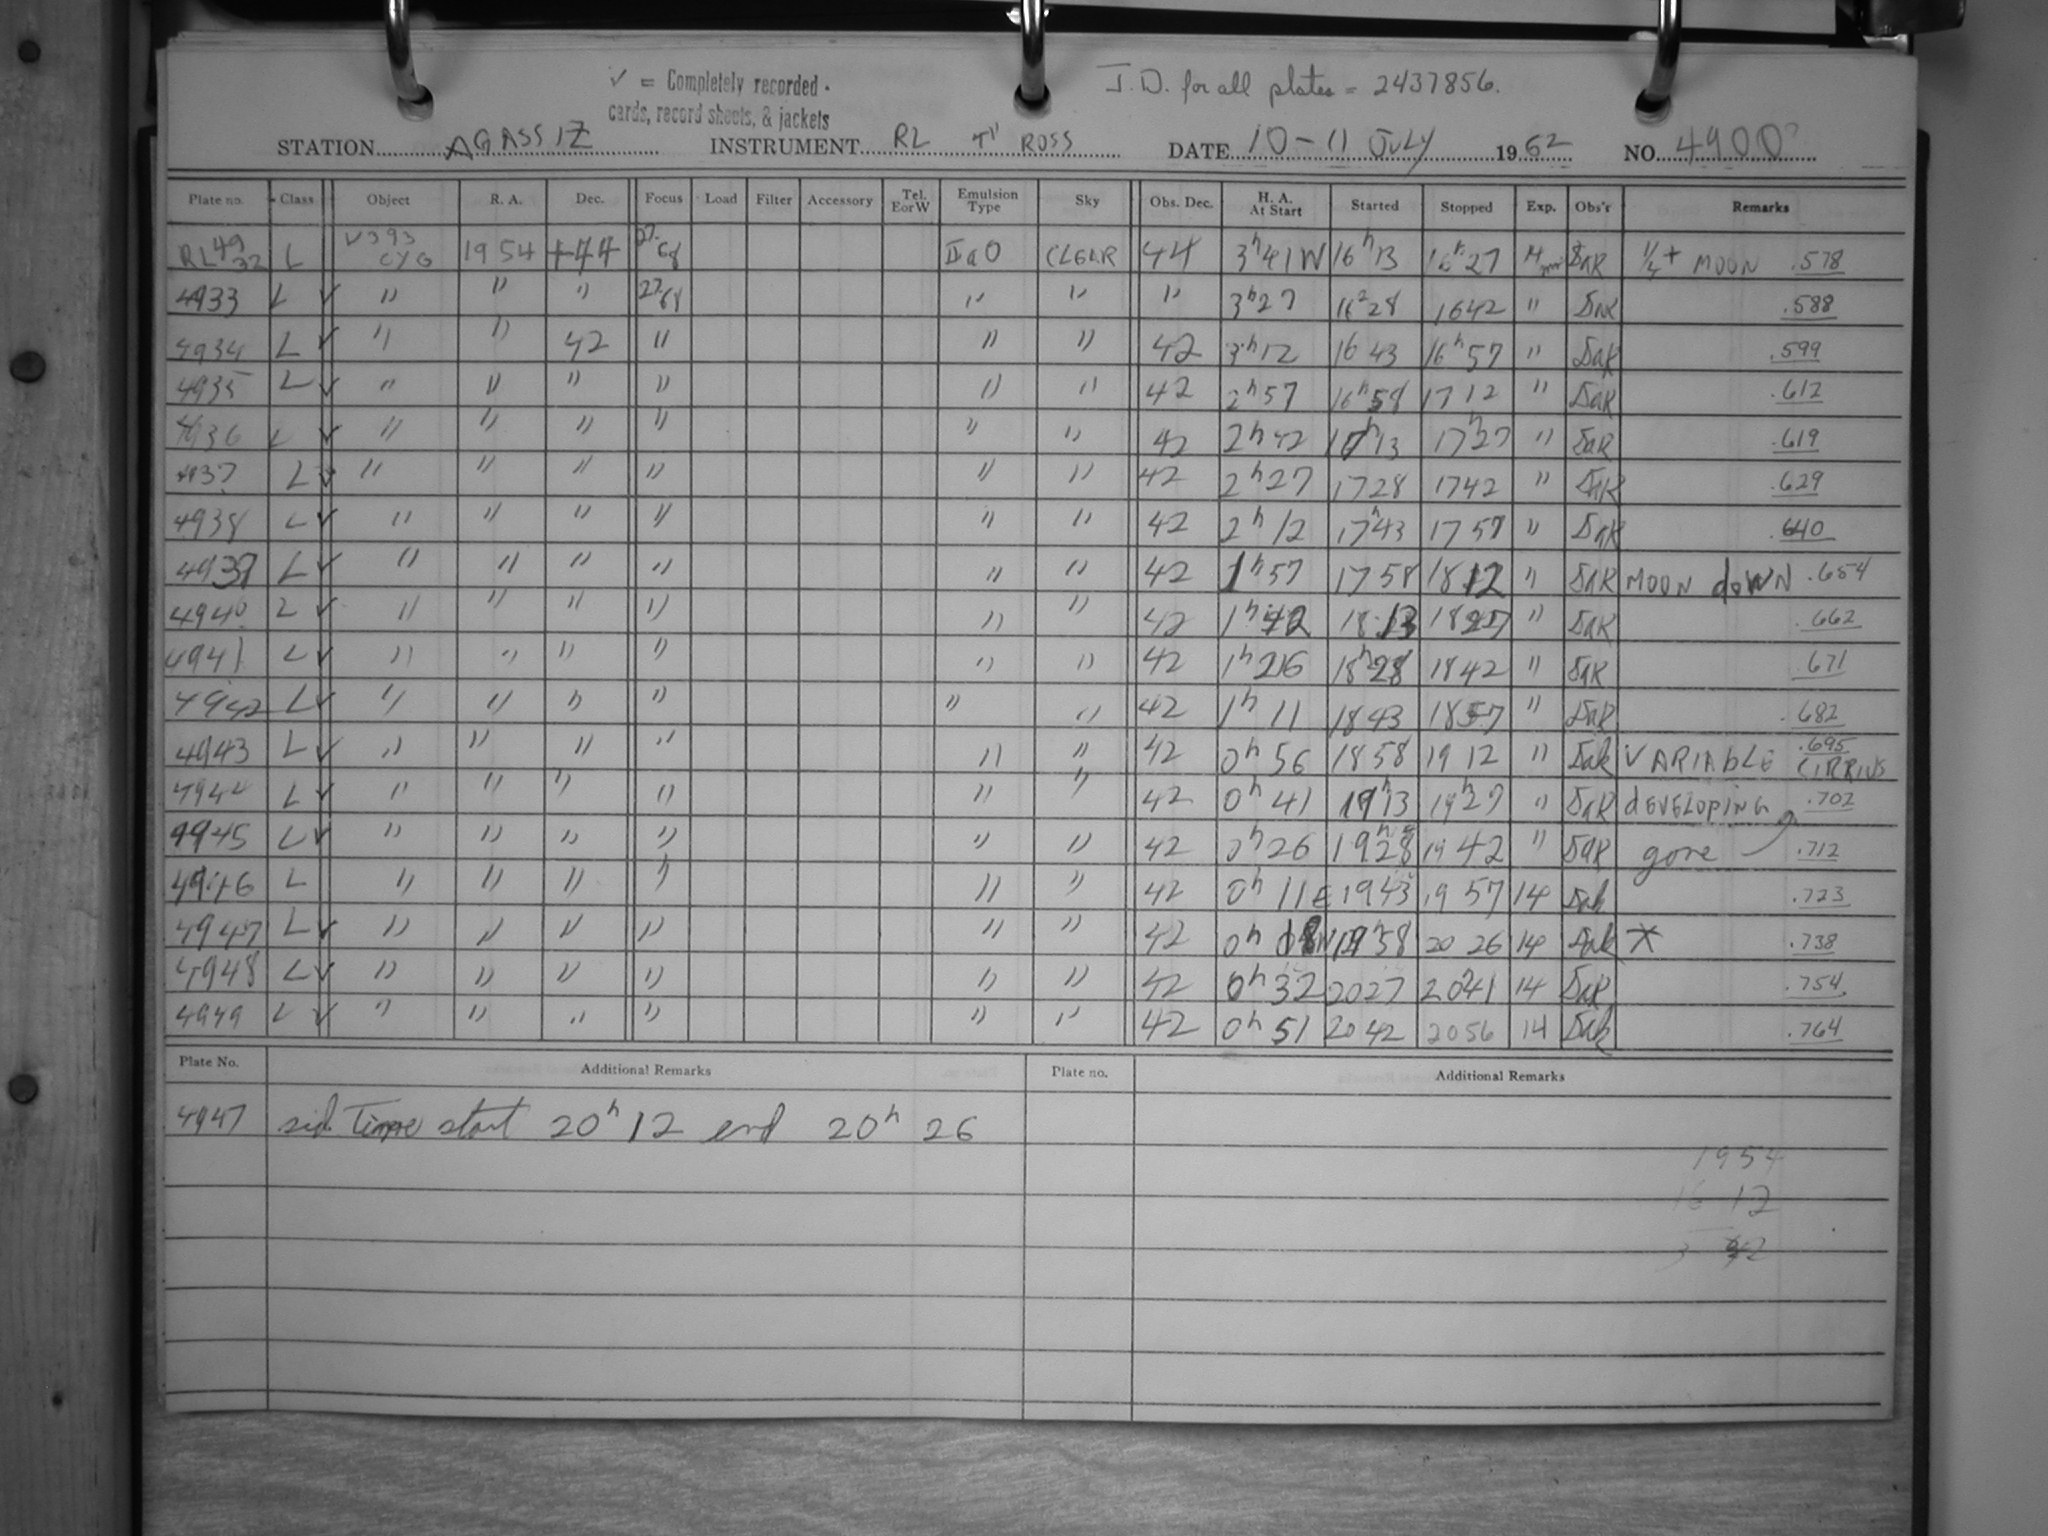 ✓ = Completely recorded.
cards, record sheets, & jackets
J.D. for all plates = 2437856.
STATION AGASSIZ INSTRUMENT RL 4" ROSS DATE 10-11 JULY 1962 NO. 4900
Plate no. Class Object R. A. Dec. Focus Load Filter Accessory Tel. EorW Emulsion Type Sky Obs. Dec. H. A. At Start Started Stopped Exp. Obs'r Remarks
RL4932 L V393 CYG 1954 +44 27.68 IIaO CLEAR 44 3h41W 16h13 16h27 14m SAR 1/4+ MOON .578
4933 L ✓ " " " 27.68 " " " 3h27 16h28 1642 " SAR .588
4934 L ✓ " " 42 " " " 42 3h12 16 43 16h57 " SAR .599
4935 L ✓ " " " " " " 42 2h57 16h58 17 12 " SAR .612
4936 L ✓ " " " " " " 42 2h42 17h13 17h27 " SAR .619
4937 L ✓ " " " " " " 42 2h27 1728 1742 " SAR .629
4938 L ✓ " " " " " " 42 2h12 17h43 1757 " SAR .640
4939 L ✓ " " " " " " 42 1h57 1758 1812 " SAR MOON doWN .654
4940 L ✓ " " " " " " 42 1h42 18 13 1827 " SAR .662
4941 L ✓ " " " " " " 42 1h26 18h28 1842 " SAR .671
4942 L ✓ " " " " " " 42 1h11 1843 1857 " SAR .682
4943 L ✓ " " " " " " 42 0h56 1858 1912 " SAR VARIABLE CIRRUS .695
4944 L ✓ " " " " " " 42 0h41 19h13 19h27 " SAR dEVELOPING .702
4945 L ✓ " " " " " " 42 0h26 19h28 19 42 " SAR gone .712
4946 L " " " " " " 42 0h11E 1943 19 57 14 SAR .723
4947 L ✓ " " " " " " 42 0h 18W 1958 20 26 14 SAR * .738
4948 L ✓ " " " " " " 42 0h32 2027 2041 14 SAR .754
4949 L ✓ " " " " " " 42 0h51 2042 2056 14 SAR .764
Plate No. Additional Remarks Plate no. Additional Remarks
4947 sid. Time start 20h12 end 20h 26
1954
16 12
3 42